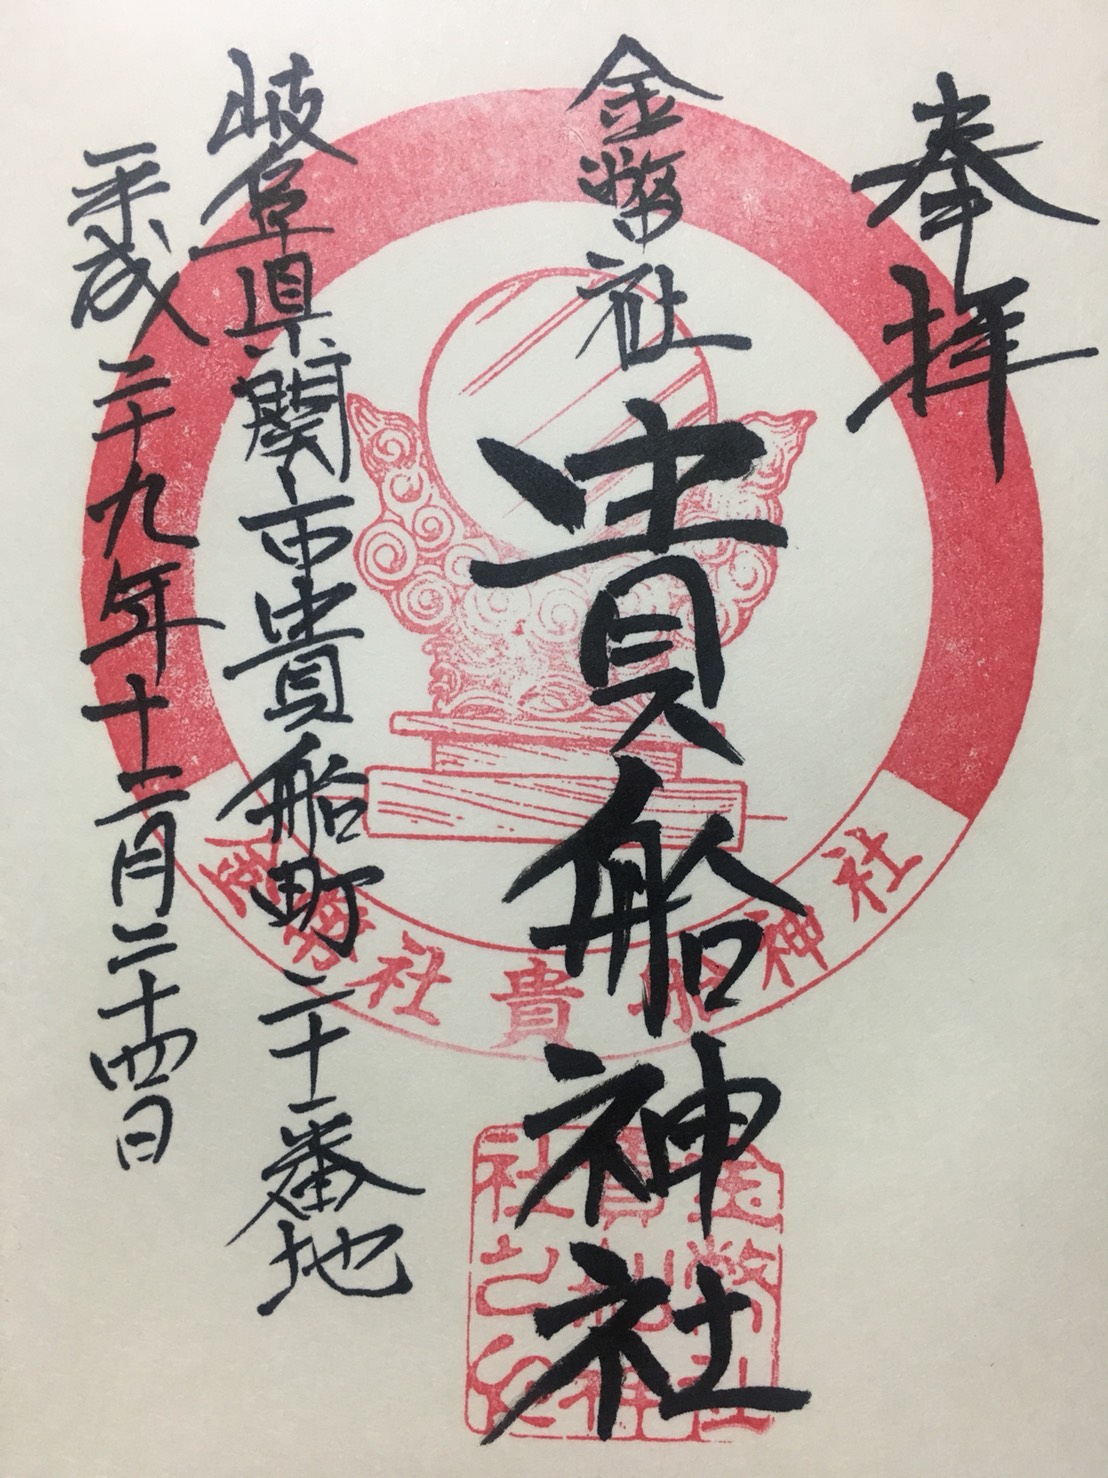 奉拝
金幣社
貴船神社
岐阜県関市貴船町二十番地
平成二十九年十二月二十四日
金幣社貴船神社
金幣社
貴船神
社之印